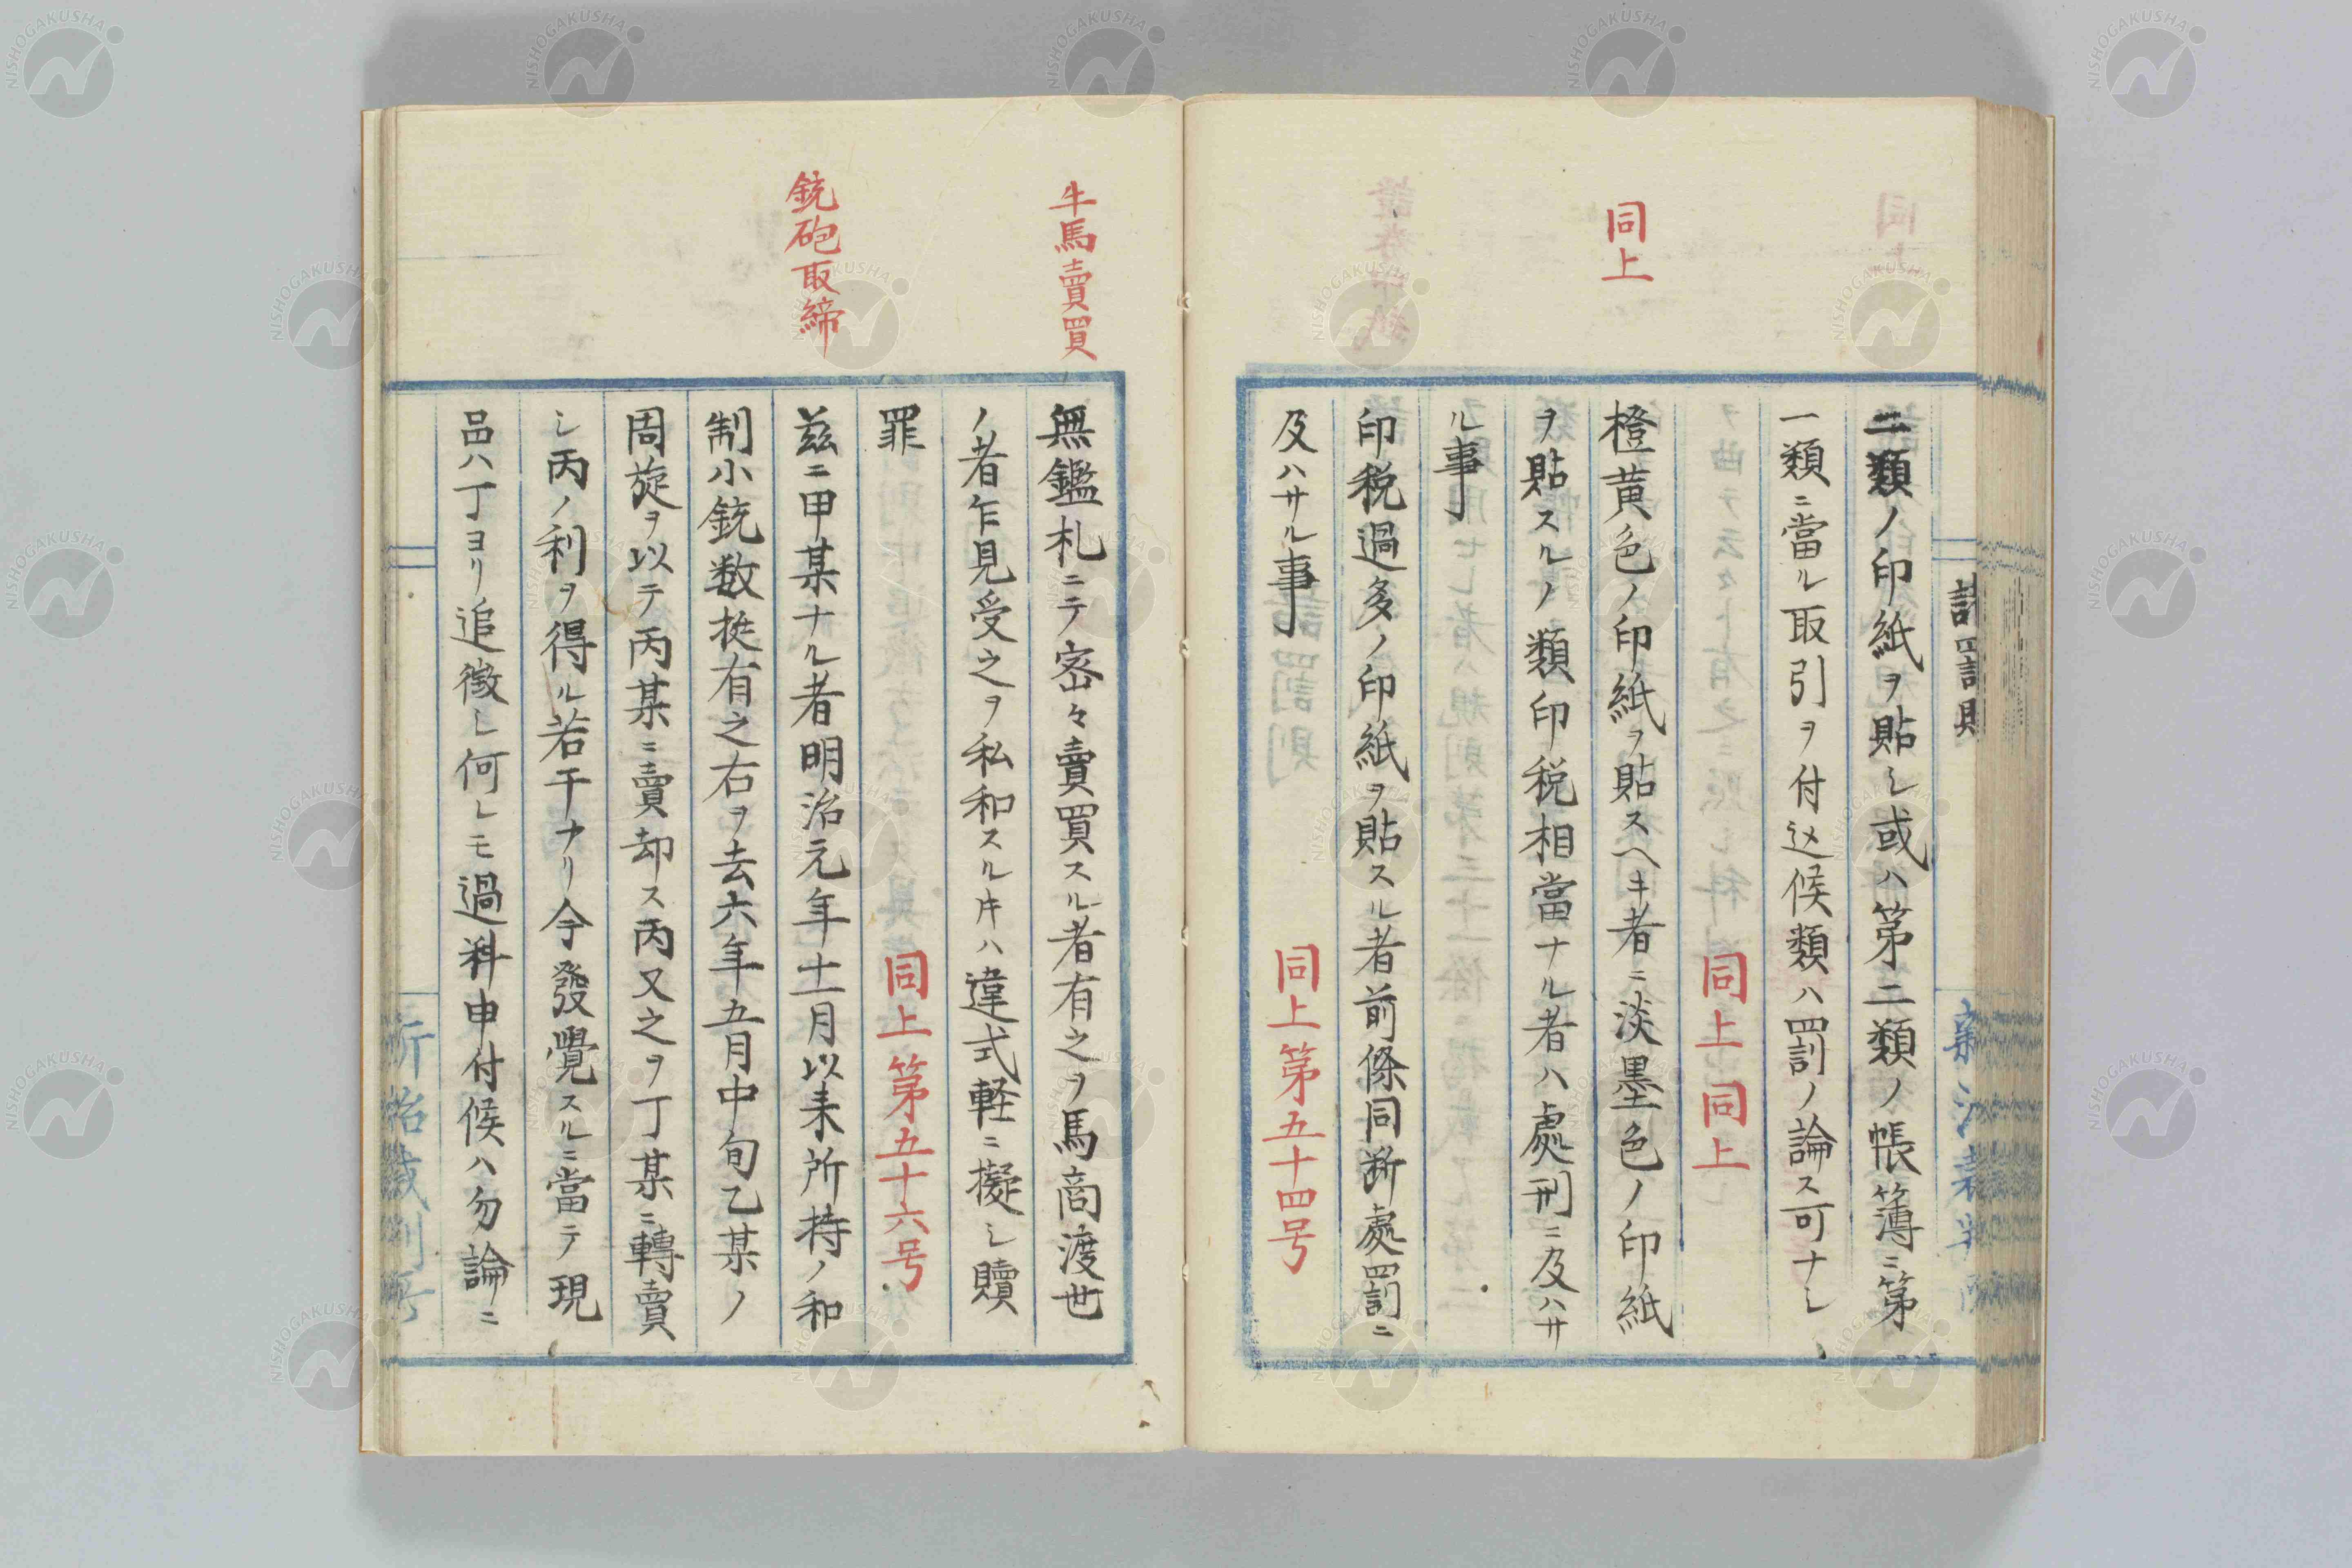 二類ノ印紙ヲ貼シ或ハ第二類ノ帳簿ニ第
一類ニ當ル取引ヲ付込候類ハ罰ノ論ス可ナシ
同上同上
同上
橙黄色ノ印紙ヲ貼スヘキ者ニ淡墨色ノ印紙
ヲ貼スルノ類印税相當ナル者ハ處刑ニ及ハサ
ル事
印税過多ノ印紙ヲ貼スル者前條同断處罰ニ
及ハサル事
同上第五十四号
牛馬賣買
無鑑札ニテ密々賣買スル者有之ヲ馬商渡世
ノ者乍見受之ヲ私和スルヰハ違式軽ニ擬シ贖
罪
同上第五十六号
銃砲取締
茲ニ甲某ナル者明治元年十一月以来所持ノ和
制小銃数挺有之右ヲ去六年五月中旬乙某ノ
周旋ヲ以テ丙某ニ賣却ス丙又之ヲ丁某ニ轉賣
シ丙ノ利ヲ得ル若干ナリ今發覺スルニ當テ現
品ハ丁ヨリ追徴シ何レモ過料申付候ハ勿論ニ